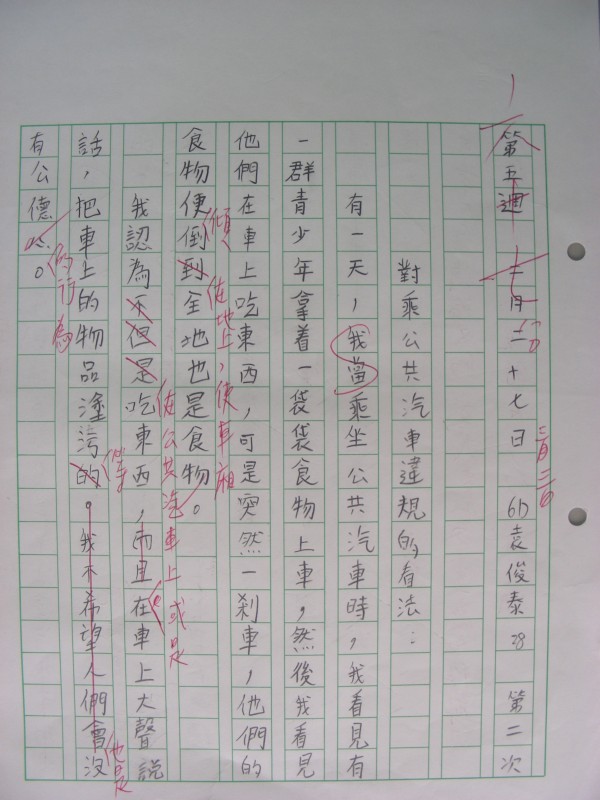 第五週 十二月二十七日 6D 袁俊泰 28 第二次
三月三日
對乘公共汽車違規的看法：
有一天，我當乘坐公共汽車時，我看見有
一群青少年拿着一袋袋食物上車，然後我看見
他們在車上吃東西，可是突然一剎車，他們的
食物便倒到全地也是食物。
傾
在地上，使車廂
我認為不但是吃東西，而且在車上大聲說
在公共汽車上或是
話，把車上的物品塗污的。我不希望人們會沒
等
也是
有公德心。
的行為